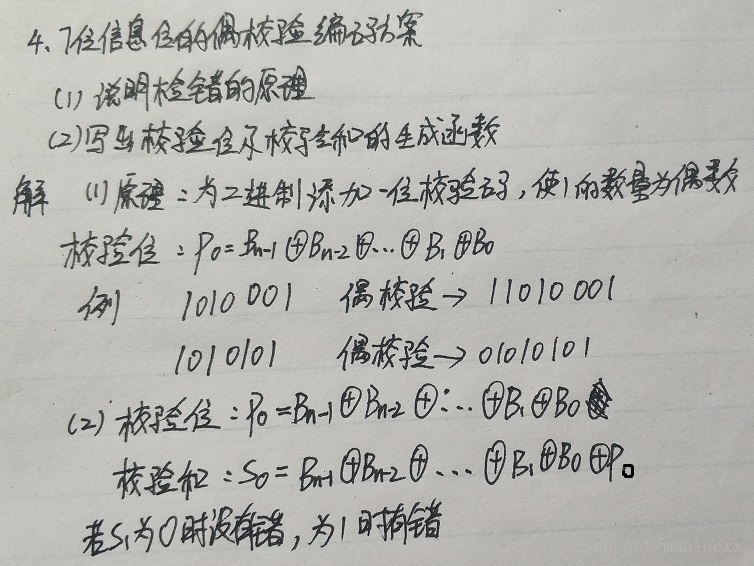 4、7位信息位的偶校验编码方案
(1) 说明检错的原理
(2) 写出校验位及校验和的生成函数
解 (1) 原理：为二进制添加一位校验码，使1的数量为偶数
校验位：P₀=Bn-1⊕Bn-2⊕…⊕B₁⊕B₀
例 1010 001 偶校验→ 11010 001
1010101 偶校验→01010101
(2) 校验位：P₀=Bn-1⊕Bn-2⊕…⊕B₁⊕B₀
校验和：S₀=Bn-1⊕Bn-2⊕…⊕B₁⊕B₀⊕P₀
若S₁为0时没有错，为1时有错